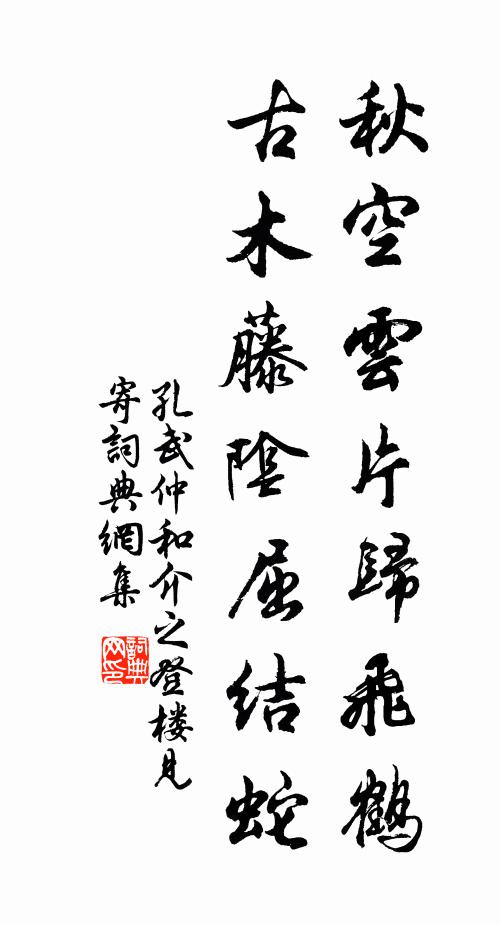 秋空雲片歸飛鶴
古木藤陰屈結蛇
孔武仲和介之登楼見
寄詞典網集
詞典網印